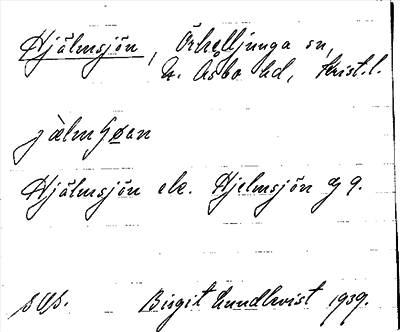 Hjälmsjön, Örkelljunga sn,
N. Åsbo hd, Krist. l.
Hjälmsjön ek. Hjelmsjön
Birgit Lundkvist 1939.